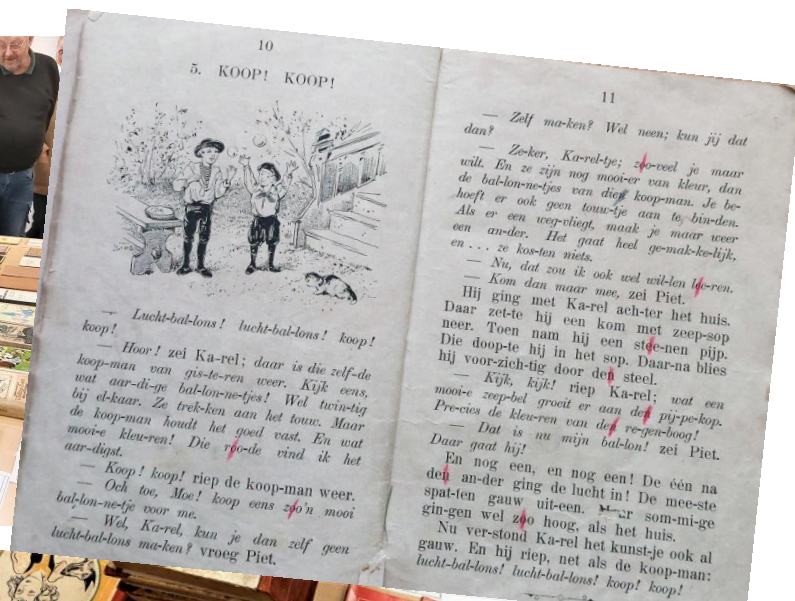 10
5. KOOP! KOOP!
— Lucht-bal-lons! lucht-bal-lons! koop!
koop!
— Hoor! zei Ka-rel; daar is die zelf-de
koop-man van gis-te-ren weer. Kijk eens,
wat aar-di-ge bal-lon-ne-tjes! Wel twin-tig
bij el-kaar. Ze trek-ken aan het touw. Maar
de koop-man houdt het goed vast. En wat
mooi-e kleu-ren! Die roo-de vind ik het
aar-digst.
— Koop! koop! riep de koop-man weer.
— Och toe, Moe! koop eens zoo'n mooi
bal-lon-ne-tje voor me.
— Wel, Ka-rel, kun je dan zelf geen
lucht-bal-lons ma-ken? vroeg Piet.
11
— Zelf ma-ken? Wel neen; kun jij dat
dan?
— Ze-ker, Ka-rel-tje; zoo-veel je maar
wilt. En ze zijn nog mooi-er van kleur, dan
de bal-lon-ne-tjes van dien koop-man. Je be-
hoeft er ook geen touw-tje aan te bin-den.
Als er een weg-vliegt, maak je maar weer
een an-der. Het gaat heel ge-mak-ke-lijk,
en ... ze kos-ten niets.
— Nu, dat zou ik ook wel wil-len lee-ren.
— Kom dan maar mee, zei Piet.
Hij ging met Ka-rel ach-ter het huis.
Daar zet-te hij een kom met zeep-sop
neer. Toen nam hij een stee-nen pijp.
Die doop-te hij in het sop. Daar-na blies
hij voor-zich-tig door den steel.
— Kijk, kijk! riep Ka-rel; wat een
mooi-e zeep-bel groeit er aan den pij-pe-kop.
Pre-cies de kleu-ren van den re-gen-boog!
— Dat is nu mijn bal-lon! zei Piet.
Daar gaat hij!
En nog een, en nog een! De één na
den an-der ging de lucht in! De mee-ste
spat-ten gauw uit-een. Maar som-mi-ge
gin-gen wel zoo hoog, als het huis.
Nu ver-stond Ka-rel het kunst-je ook al
gauw. En hij riep, net als de koop-man:
lucht-bal-lons! lucht-bal-lons! koop! koop!